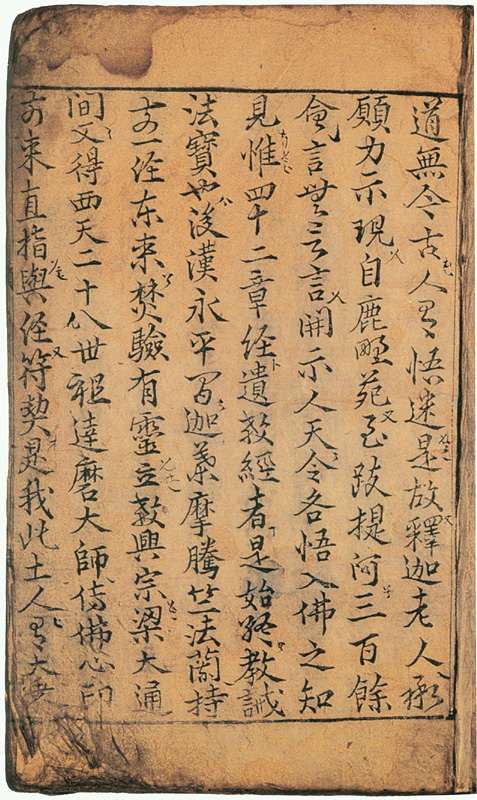 道無今古人有悟迷是故釋迦老人承
願力示現自鹿野苑至跋提河三百餘
會言無言言開示人天令各悟入佛之知
見惟四十二章經遺教經者是始終教誡
法寶也後漢永平間迦葉摩騰竺法蘭持
一经东来焚驗有靈立教興宗梁大通
間又得西天二十八世祖達磨大師傳佛心印
来直指與经符契是我此土人有大